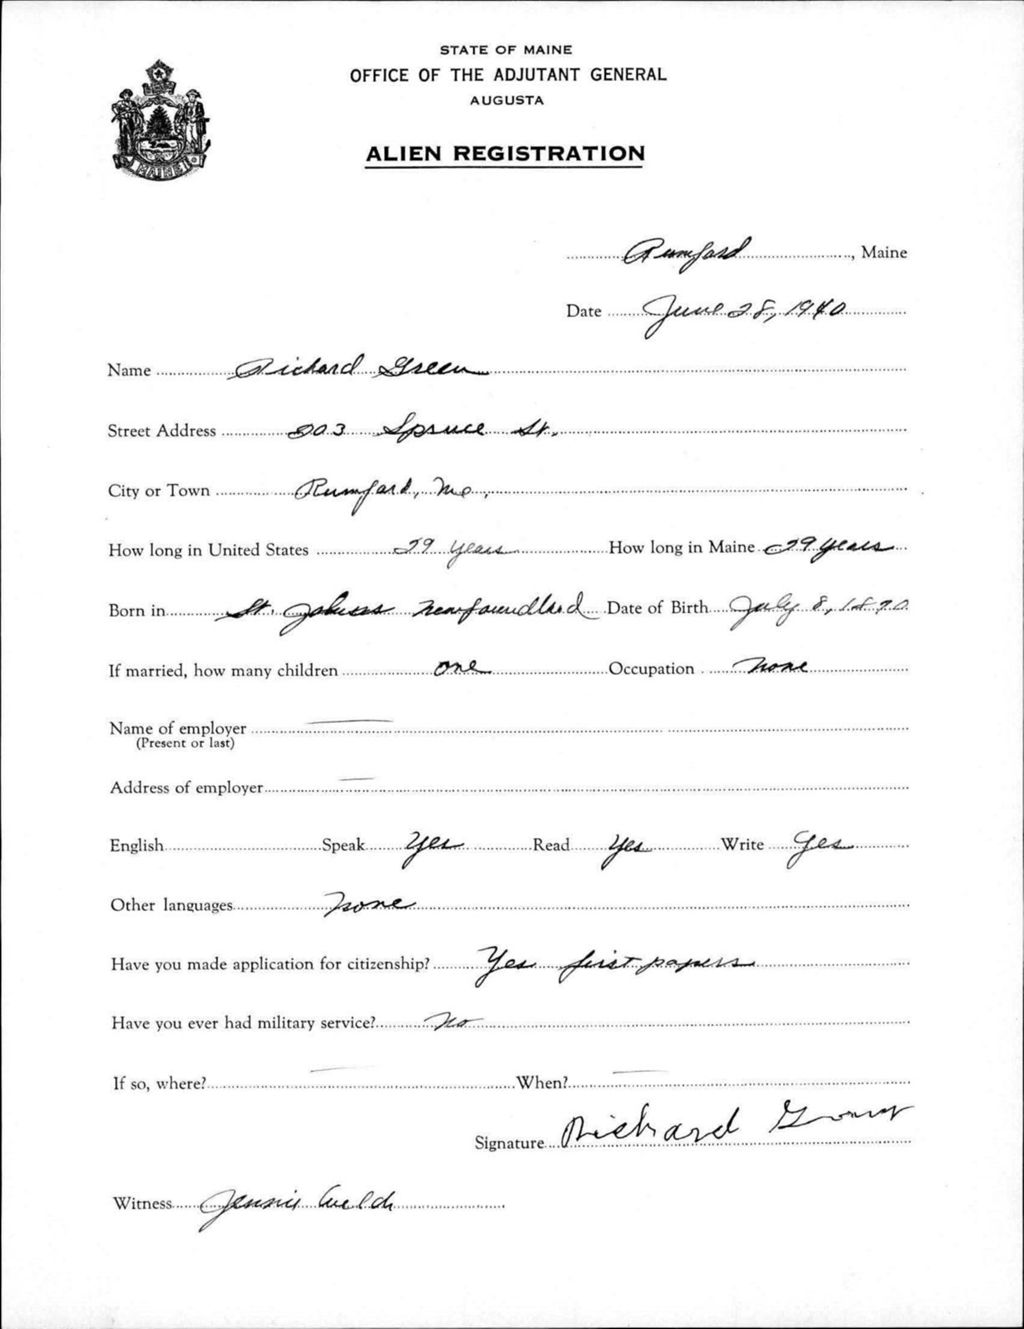 STATE OF MAINE
OFFICE OF THE ADJUTANT GENERAL
AUGUSTA
ALIEN REGISTRATION
MAINE
Rumford, Maine
Date June 28, 1940
Name Richard Green
Street Address 203 Spruce St.
City or Town Rumford, Me.
How long in United States 29 years How long in Maine 29 years
Born in St. Johns Newfoundland Date of Birth July 8, 1890
If married, how many children one Occupation none
Name of employer
(Present or last)
Address of employer
English Speak Yes Read Yes Write Yes
Other languages none
Have you made application for citizenship? Yes first papers
Have you ever had military service? No
If so, where? When?
Signature Richard
Witness Jennie Welch